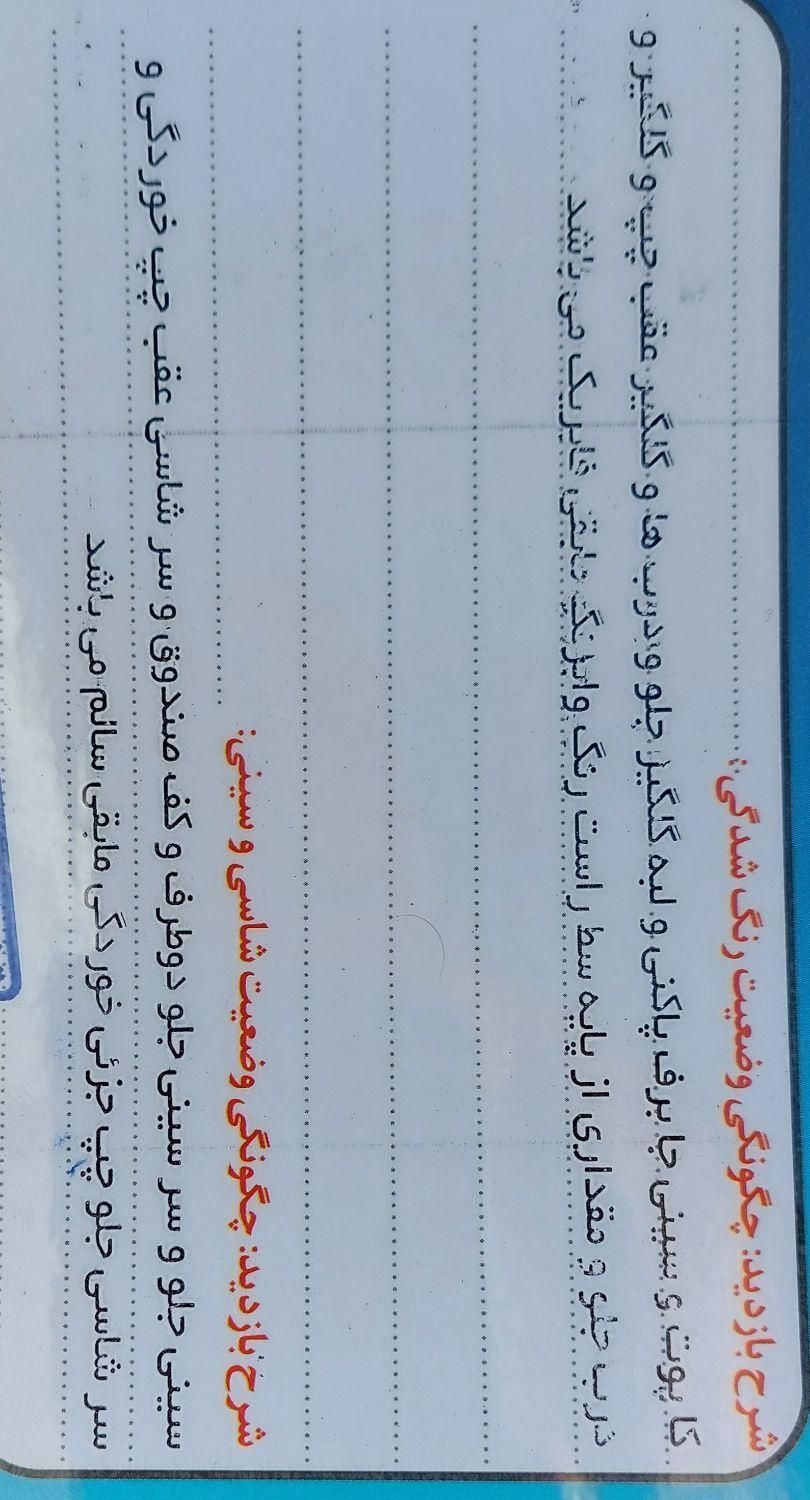 شرح بازدید: چگونگی وضعیت رنگ شدگی:
کاپوت و سینی جا برف پاکنی و لبه گلگیر جلو و درب ها و گلگیر عقب چپ و گلگیر و
درب جلو و مقداری از پایه سط راست رنگ وابرنگ مابقی فابریک می باشد
شرح بازدید: چگونگی وضعیت شاسی و سینی:
سینی جلو و سر سینی جلو دوطرف و کف صندوق و سر شاسی عقب چپ خوردگی و
سر شاسی جلو چپ جزئی خوردگی مابقی سالم می باشد